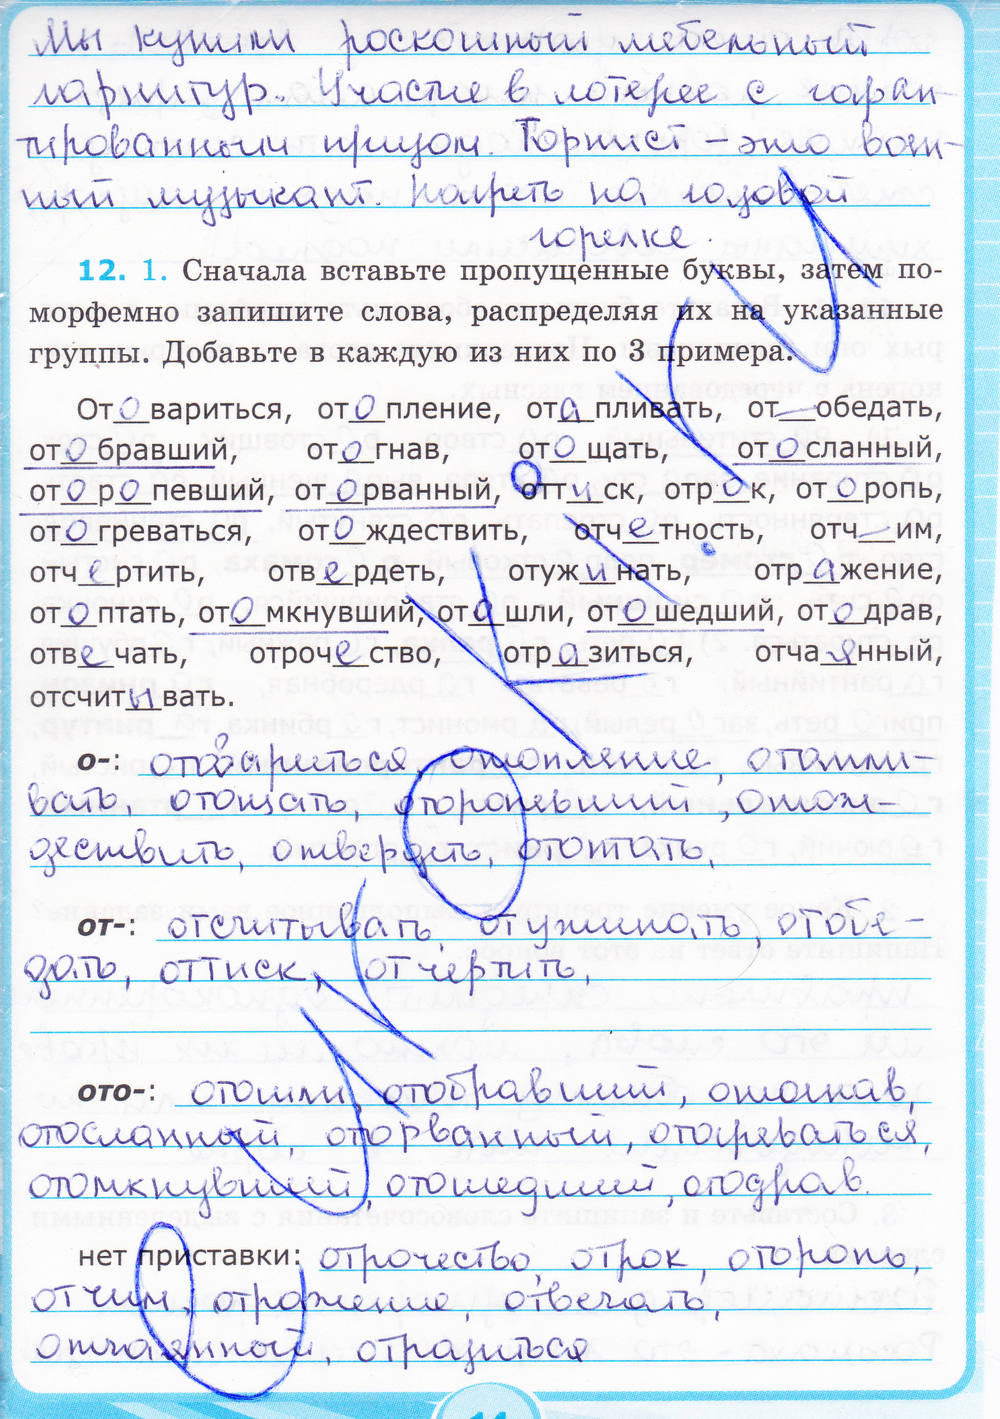 Мы купили роскошный мебельный
гарнитур. Участие в лотерее с гаран-
тированным призом. Горнист - это воен-
ный музыкант. Погреть на газовой
горелке.
12. 1. Сначала вставьте пропущенные буквы, затем по-
морфемно запишите слова, распределяя их на указанные
группы. Добавьте в каждую из них по 3 примера.
От о вариться, от о пление, от а пливать, от обедать,
от о бравший, от о гнав, от о щать, от о сланный,
от о р о певший, от о рванный, отт и ск, отр о к, от о ропь,
от о греваться, от о ждествить, отч е тность, отч им,
отч е ртить, отв е рдеть, отуж и нать, отр а жение,
от о птать, от о мкнувший, от о шли, от о шедший, от о драв,
отв е чать, отроч е ство, отр а зиться, отча я нный,
отсчит ы вать.
о-: отовариться, отопление, отапли-
вать, отощать, оторопевший, отож-
дествить, отвердеть, отоптать,
от-: отсчитывать, отужинать, отобе-
дать, оттиск, отчертить,
ото-: отошли, отобравший, отогнав,
отосланный, оторванный, отогреваться,
отомкнувший, отошедший, отодрав.
нет приставки: отрочество, отрок, оторопь,
отчим, отражение, отвечать,
отчаянный, отразиться